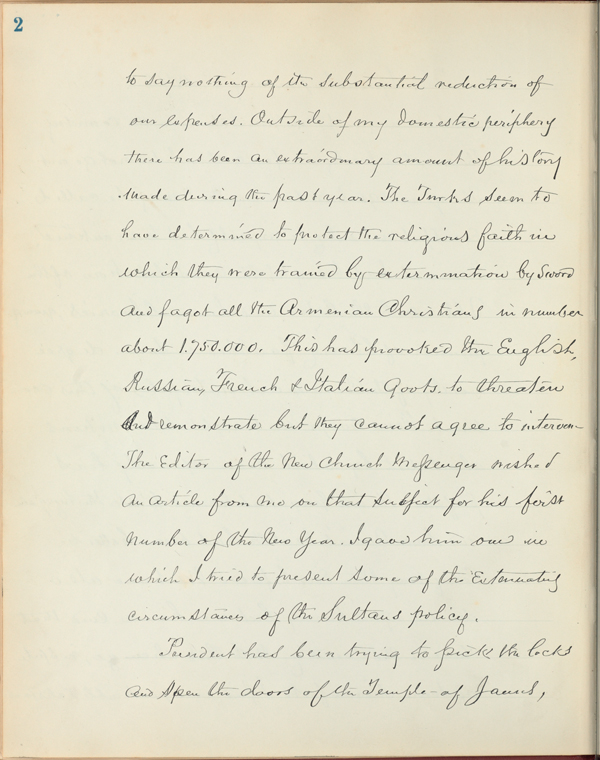 2
to say nothing of the substantial reduction of
our expenses. Outside of my domestic periphery
there has been an extraordinary amount of history
made during the past year. The Turks seem to
have determined to protect the religious faith in
which they were trained by extermination by sword
and fagot all the Armenian Christians in number
about 1.750.000. This has provoked the English,
Russian, French & Italian Govts. to threaten
and remonstrate but they cannot agree to interven—
The Editor of the New Church Messenger wished
an article from me on that subject for his first
number of the New Year. I gave him one in
which I tried to present some of the Extenuating
circumstances of the Sultans policy.
President has been trying to pick the locks
and open the doors of the Temple of Janus,